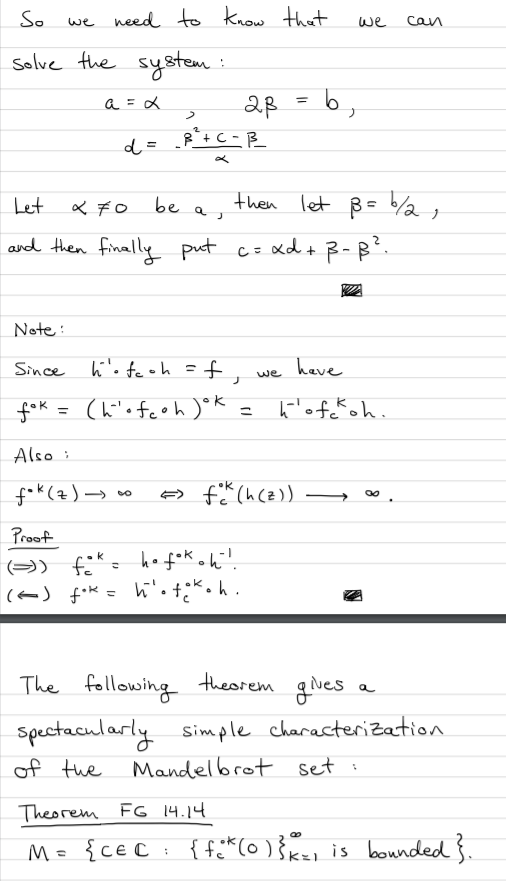 So we need to know that we can
solve the system :
a = α , 2β = b,
d = β² + c - β / α
Let α ≠ 0 be a, then let β = b/2 ,
and then finally put c = αd + β - β².
Note:
Since h⁻¹∘f_c∘h = f, we have
f^∘k = (h⁻¹∘f_c∘h)^∘k = h⁻¹∘f_c^k∘h.
Also :
f^∘k(z) → ∞ ⇔ f_c^∘k(h(z)) ⟶ ∞.
Proof
(⇒)) f_c^∘k = h∘f^∘k∘h⁻¹.
(⇐) f^∘k = h⁻¹∘f_c^∘k∘h.
The following theorem gives a
spectacularly simple characterization
of the Mandelbrot set :
Theorem FG 14.14
M = {c∈ℂ : {f_c^∘k(0)}_{k=1}^∞ is bounded}.